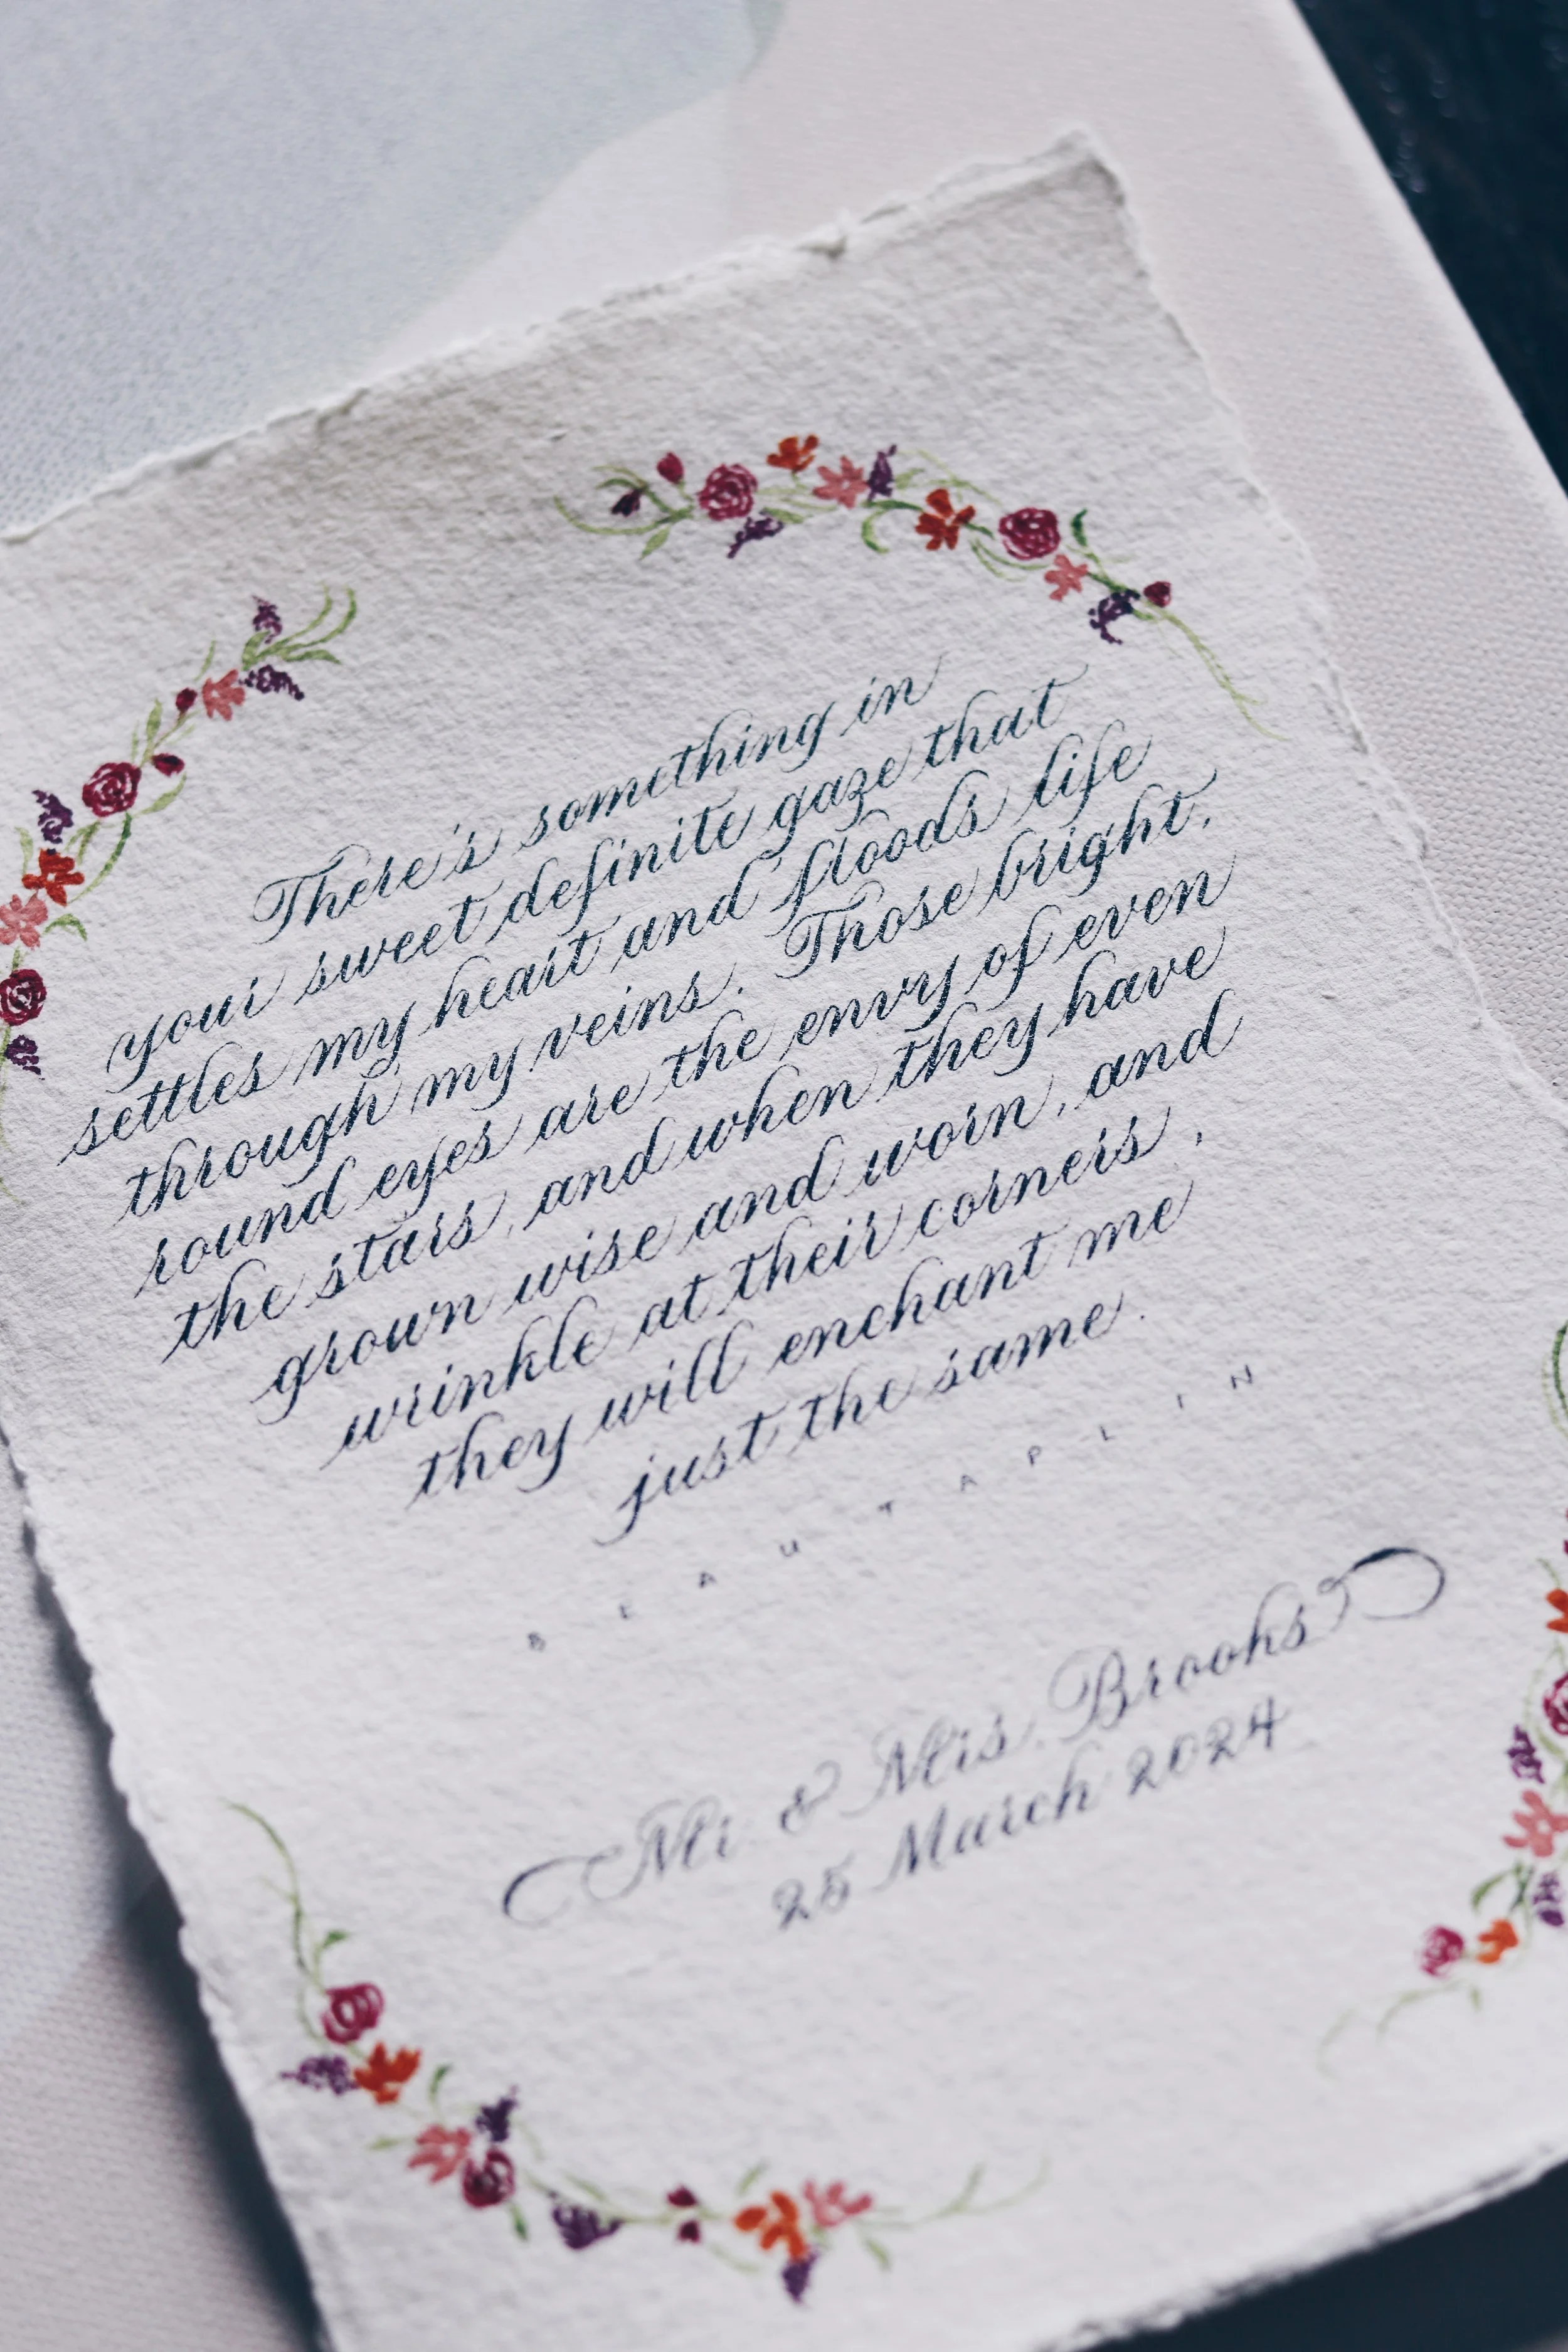 There's something in
your sweet definite gaze that
settles my heart and floods life
through my veins. Those bright,
round eyes are the envy of even
the stars, and when they have
grown wise and worn, and
wrinkle at their corners,
they will enchant me
just the same.
BEAU TAPLIN
Mr. & Mrs. Brooks
25 March 2024